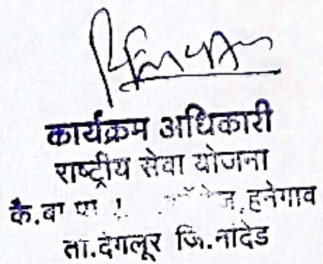 कार्यक्रम अधिकारी
राष्ट्रीय सेवा योजना
कै.बा पा हनेगाव
ता.देगलूर जि.नांदेड